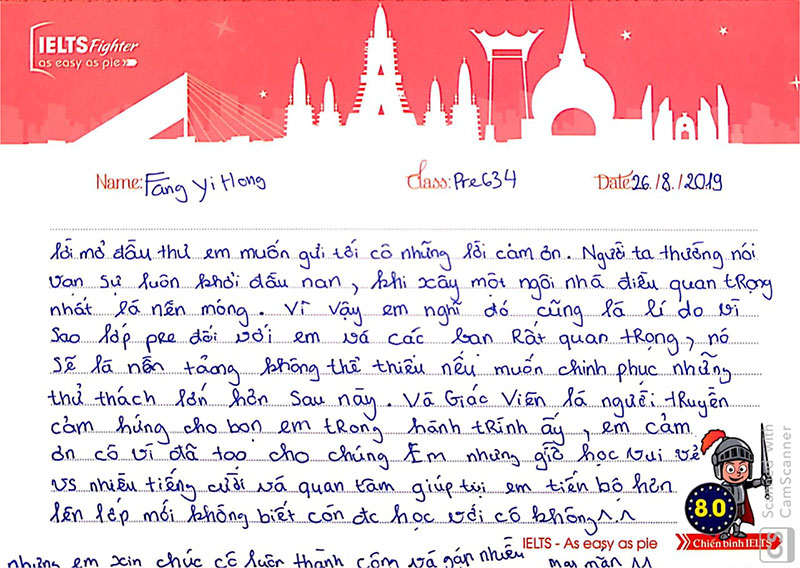 IELTS Fighter
as easy as pie
Name: Fang Yi Hong Class: Pre634 Date 26./8./2019
Lời mở đầu thư em muốn gửi tới cô những lời cảm ơn. Người ta thường nói
vạn sự luôn khởi đầu nan, khi xây một ngôi nhà điều quan trọng
nhất là nền móng. Vì vậy em nghĩ đó cũng là lí do vì
sao lớp pre đối với em và các bạn rất quan trọng, nó
sẽ là nền tảng không thể thiếu nếu muốn chinh phục những
thử thách lớn hơn sau này. Và Giác Viên là người truyền
cảm hứng cho bọn em trong hành trình ấy, em cảm
ơn cô vì đã tạo cho chúng Em những giờ học vui vẻ
vs nhiều tiếng cười và quan tâm giúp tụi em tiến bộ hơn
lên lớp mới không biết còn đc học với cô không^.^
những em xin chúc cô luôn thành công và gặp nhiều may mắn
8.0
IELTS - As easy as pie
Chiến binh IELTS
Scanned with
CamScanner
CS